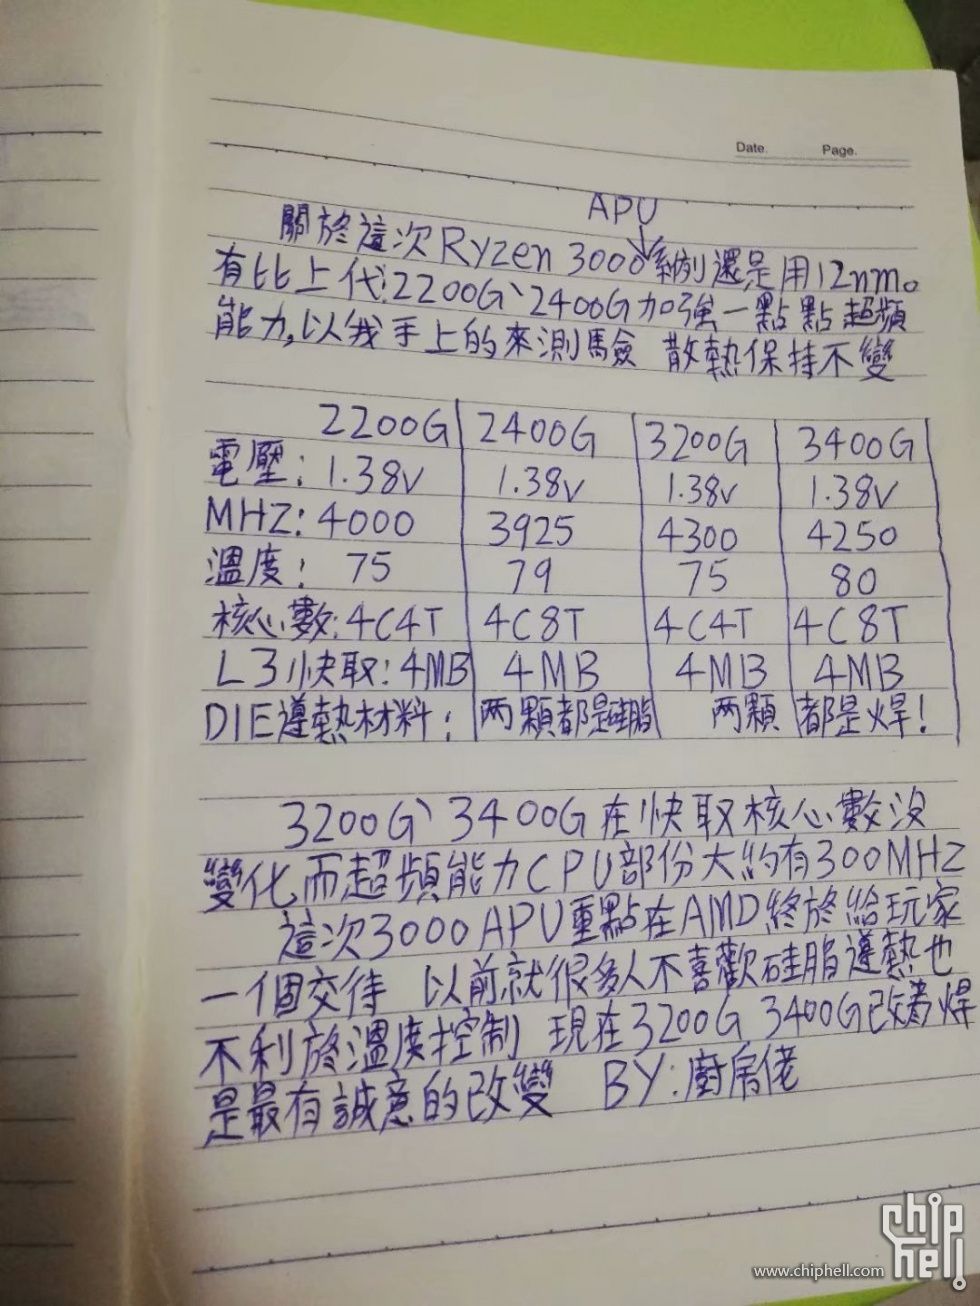 Date.    Page.
APU
關於這次Ryzen 3000系例還是用12nm。
有比上代2200G、2400G加強一點點超頻
能力,以我手上的來測驗 散熱保持不變
2200G 2400G 3200G 3400G
電壓: 1.38V 1.38V 1.38V 1.38V
MHZ: 4000 3925 4300 4250
溫度: 75 79 75 80
核心數:4C4T 4C8T 4C4T 4C8T
L3快取:4MB 4MB 4MB 4MB
DIE導熱材料: 两顆都是硅脂 两顆都是焊!
3200G、3400G在快取核心數沒
變化而超頻能力CPU部份大約有300MHZ
這次3000APU重點在AMD終於給玩家
一個交待 以前就很多人不喜歡硅脂導熱也
不利於溫度控制 現在3200G 3400G改着焊
是最有誠意的改變 BY:廚房佬
chip
hell
www.chiphell.com